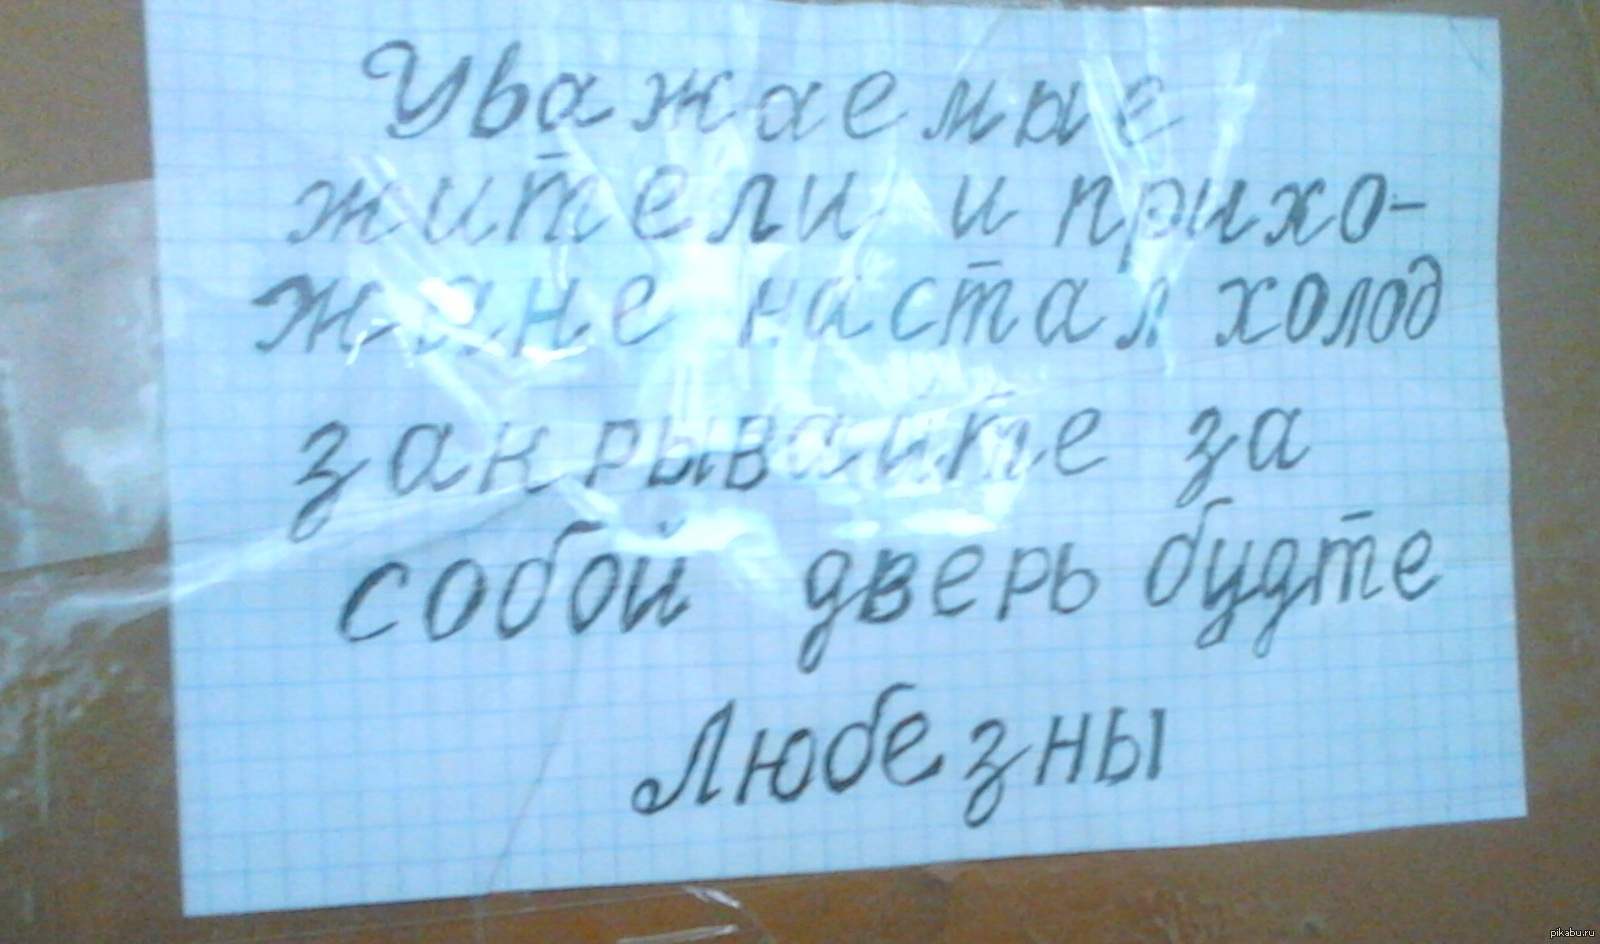 Уважаемые
жители и прихо-
жане настал холод
закрывайте за
собой дверь будте
Любезны
pikabu.ru